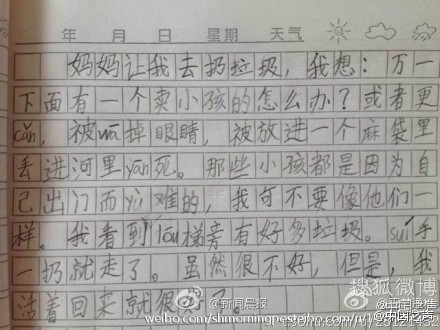 年 月 日 星期 天气
妈妈让我去扔垃圾，我想：万一
下面有一个卖小孩的怎么办？或者更
cǎn，被wā掉眼睛，被放进一个麻袋里
丢进河里yān死。那些小孩都是因为自
己出门而yù难的，我可不要像他们一
样。我看到lóu梯旁有好多垃圾。suí手
一扔就走了。虽然很不好，但是，我
活着回来就很好了
@新闻晨报
搜狐微博
weibo.com/shmorningpost
@中国之声